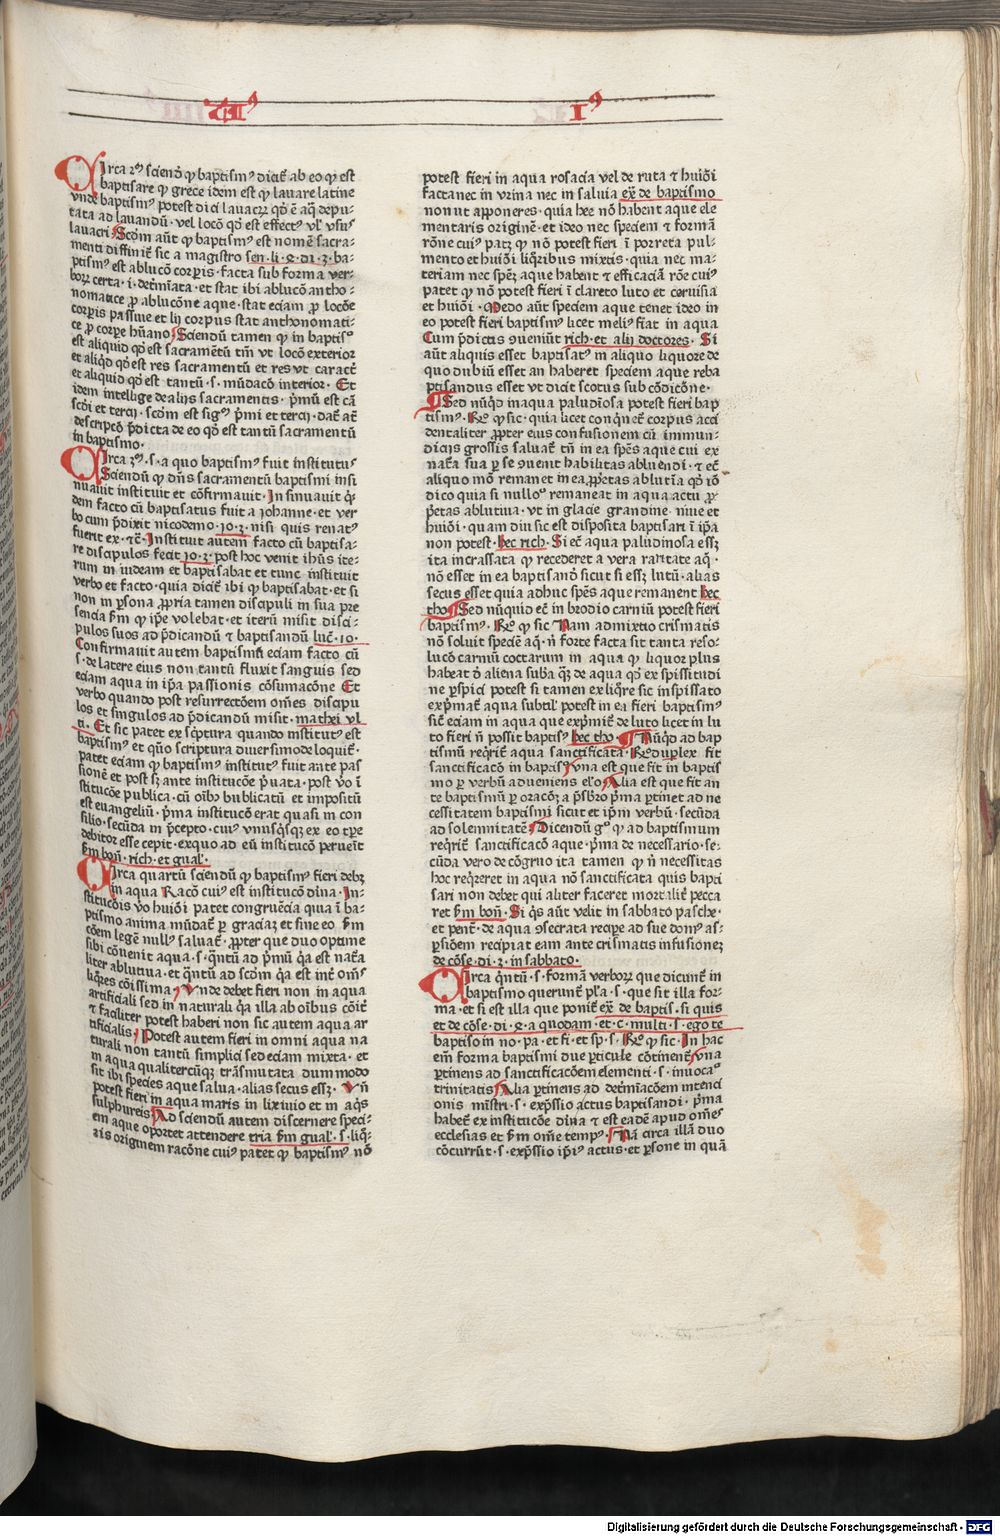 Circa 2ꝰ sciendũ ꝙ baptismꝰ dicit᷑ ab eo ꝙ est
baptisare ꝙ grece idem est ꝙ lauare latine
vnde baptismꝰ potest dici lauacrꝝ qđ ẽ aq̃ depu-
tata ad lauandũ · vel locꝰ qđ est effectꝰ vl̛ vsuˢ
lauacri Scđm aũt ꝙ baptismꝰ est nomẽ sacra-
menti diffinit᷑ sic a magistro sen · li · 4 · di · 3 · ba-
ptismꝰ est ablucõ corꝑis · facta sub forma ver-
borꝝ certa · i · deťmĩata · et stat ibi ablucõ antho-
nomatice ꝓ ablucõne aque · stat eciam ꝓ locõe
corꝑis passiue et lý corpus stat anthonomati-
ce ꝓ corꝑe hũano Sciendũ tamen ꝙ in baptisꝰ
est aliquid qđ est sacramẽtũ tm̃ vt locõ exterior
et aliqđ qđ est res sacramentũ et res vt caract᷑
et aliquid qđ est tantũ · s · mũdacõ interior · Et
idem intellige de alijs sacramentis · pͥmũ est cã
scđi et tercij · scđm est sigꝰ pͥmi et tercij · dat᷑ at᷑
descripcõ p̃dicta de eo qđ est tantũ sacramentũ
in baptismo ·
Circa 3ꝰ · s · a quo baptismꝰ fuit institutuˢ
Sciendũ ꝙ dñs sacramentũ baptismi insi
nuauit instituit et cõfirmauit · In sinuauit q̃
dem facto cũ baptisatus fuit a iohanne · et ver
bo cum p̃dixit nicodemo · io · 3 · nisi quis renatꝰ
fuerit ex · ꝛc̃ · Instituit autem facto cũ baptisa-
re discipulos fecit io · 3 · post hoc venit ih̃us ite-
rum in iudeam et baptisabat et tunc instituit
verbo et facto · quia dicit᷑ ibi ꝙ baptisabat · et si
non in ꝑsona ꝓpria tamen discipuli in sua pre
sencia s̃m ꝙ ip̃e volebat · et iterũ misit disci-
pulos suos ad p̃dicandũ ⁊ baptisandũ luc̃ · 10 ·
Confirmauit autem baptismũ eciam facto cũ
· s · de latere eius non tantũ fluxit sanguis sed
eciam aqua in ip̃a passionis cõsumacõne Et
verbo quando post resurrectõem om̃es discipu
los et singulos ad p̃dicandũ misit · mathei vl̛
ti · Et sic patet ex sc̛ptura quando institutꝰ est
baptismꝰ et qũo scriptura diuersimode loquit᷑ ·
patet eciam ꝙ baptismꝰ institutꝰ fuit ante pas
sionẽ et post sꝫ ante institucõe p̃uata · post ṽo ĩ
stitucõe publica · cũ oĩbꝰ bublicatũ et impositũ
est euangeliũ · pͥma institucõ erat quasi in con
silio · secũda in p̃cepto · cuiꝰ vnusq̃sqꝫ ex eo tꝑe
debitor esse cepit · exquo ad eũ institucõ peruẽit
s̃m boñ · rich · et gual̛ ·
Circa quartũ sciendũ ꝙ baptismꝰ fieri debꝫ
in aqua Racõ cuiꝰ est institucõ dĩna · In-
stitucõis ṽo huiõi patet congruẽcia quia ĩ ba-
ptismo anima mũdat᷑ ꝑ graciaꝫ et sine eo s̃m
cõem legẽ nullꝰ saluat᷑ · ꝓpter que duo optime
sibi cõuenit aqua · s · q̃ntũ ad pͥmũ q̃a est nat᷑a
liter ablutiua · et q̃ntũ ad scđm q̃a est int᷑ om̃s
liq̃res cõissima Vnde debet fieri non in aqua
artificiali sed in naturali q̃a illa ab oĩbus cõit᷑
⁊ faciliter potest haberi non sic autem aqua ar
tificialis Potest autem fieri in omni aqua na
turali non tantũ simplici sed eciam mixta · et
in aqua qualitercũqꝫ trãsmutata dummodo
sit ibi species aque salua · alias secus essꝫ · Vñ
potest fieri in aqua maris in lixiuio et in aq̃s
sulphureis Ad sciendũ autem discernere speci-
em aque oportet attendere tria s̃m gual̛ · s · liq̃-
ris originem racõne cuiꝰ patet ꝙ baptismꝰ nõ
potest fieri in aqua rosacia vel de ruta ⁊ huiõi
facta nec in vrina nec in saluia ex̃ de baptismo
non ut apponeres · quia hec nõ habent aque ele
mentaris originẽ · et ideo nec speciem ⁊ formã
rõne cuiꝰ patꝫ ꝙ nõ potest fieri ĩ porreta pul-
mento et huiõi liq̃ribus mixtis · quia nec ma-
teriam nec spẽꝫ aque habent ⁊ efficaciã rõe cuiꝰ
patet ꝙ nõ potest fieri ĩ clareto luto et ceruisia
et huiõi · Medo aũt speciem aque tenet ideo in
eo potest fieri baptismꝰ licet meliꝰ fiat in aqua
Cum p̃dictis ꝯueniũt rich · et alij doctores · Si
aũt aliquis esset baptisatꝰ in aliquo liquore de
quo dubiũ esset an haberet speciem aque reba
ptisandus esset vt dicit scotus sub cõdicõne ·
Sed nũq̃d in aqua paludiosa potest fieri bap
tismꝰ · Rõ ꝙ sic · quia licet conq̃net᷑ corpus acci
dentaliter ꝓpter eius confusionem cũ immun-
dicijs grossis saluat᷑ tñ in ea spẽs aque cui ex
nat᷑a sua ꝑ se ꝯuenit habilitas abluendi · ⁊ ec̃
aliquo mõ remanet in ea ꝓp̃etas ablutĩa qđ iõ
dico quia si nulloꝰ remaneat in aqua actu ꝓ
p̃etas ablutiua · vt in glacie grandine · niue et
huiõi · quam diu sic est disposita baptisari ĩ ip̃a
non potest · hec rich · Si ec̃ aqua paludinosa essꝫ
ita incrassata ꝙ recederet a vera raritate aq̃ ·
nõ esset in ea baptisandũ sicut si essꝫ lutũ · alias
secus esset quia adhuc spẽs aque remanent hec
tho Sed nũquid ec̃ in brodio carniũ potest fieri
baptismꝰ · Rõ ꝙ sic Nam admixtio crismatis
nõ soluit speciẽ aq̃ · ñ forte facta sit tanta reso-
lucõ carniũ coctarum in aqua ꝙ liquor plus
habeat đ aliena sub̃a q̃ꝫ de aqua qđ ex spissitudi
ne ꝑspici potest si tamen ex liq̃re sic inspissato
exp̃mat᷑ aqua subtil̛ potest in ea fieri baptismꝰ
sic᷑ eciam in aqua que exp̃mit᷑ de luto licet in lu
to fieri ñ possit baptisꝰ hec tho · Nũq̃d ad bap
tismũ req̃rit᷑ aqua sanctificata · Rõ duplex fit
sanctificacõ in baptisꝰ vna est que fit in baptis
mo ꝑ verbũ adueniens el̛o Alia est que fit an
te baptismũ ꝑ oracõꝫ a p̃sbro pͥma ꝑtinet ad ne
cessitatem baptismi sicut et ip̃m verbũ · secũda
ad solemnitatẽ Dicendũ gͦ ꝙ ad baptismum
req̃rit᷑ sanctificacõ aque · pͥma de necessario · se-
cũda vero de cõgruo ita tamen ꝙ ñ necessitas
hoc req̃reret in aqua nõ sanctificata quis bapti
sari non debet qui aliter faceret mortalit᷑ pecca
ret s̃m boñ · Si q̃s aũt velit in sabbato pasche ·
et pent᷑ · de aqua ꝯsecrata recipe ad sue domꝰ as-
ꝑsiõem recipiat eam ante crismatis infusionẽꝫ
de cõse · di · 2 · in sabbato ·
Circa q̃ntũ · s · formã verborꝝ que dicunt᷑ in
baptismo querunt᷑ pl̛a · s · que sit illa for-
ma · et si est illa que ponit᷑ ex̃ de baptis · si quis
et de cõse · di · 4 · a quodam · et · c · multi · s · ego te
baptiso in no · pa · et fi · et sp · s · Rõ ꝙ sic · In hac
em̃ forma baptismi due ꝑticule cõtinent᷑ vna
ꝑtinens ad sanctificacõem elementi · s · inuocaꝰ
trinitatis Alia ꝑtinens ad deťmĩacõem intenci
onis mĩstri · s · exp̃ssio actus baptisandi · pͥma
habet᷑ ex institucõe dĩna ⁊ est eadẽ apud om̃es
ecclesias et s̃m om̃e tempꝰ · Nã circa illã duo
cõcurrũt · s · exp̃ssio ip̃iꝰ actus · et ꝑsone in quã
Digitalisierung gefördert durch die Deutsche Forschungsgemeinschaft · DFG